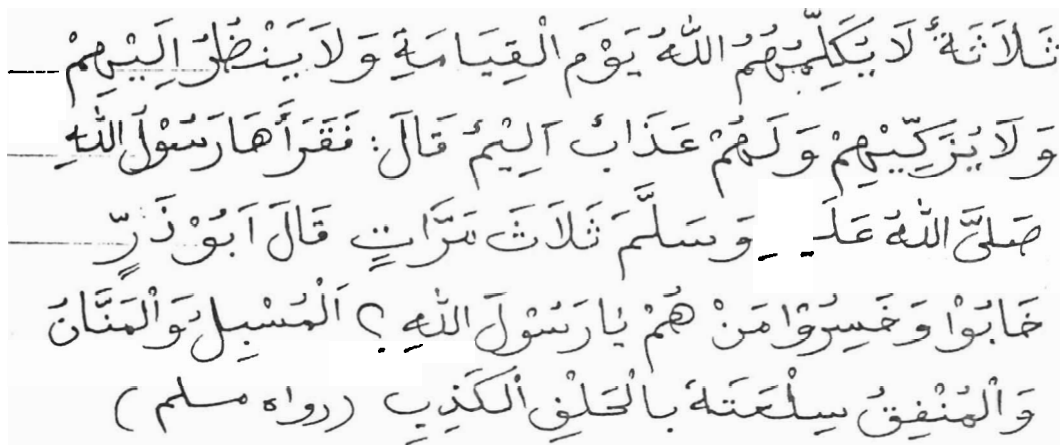 ثَلَاثَةٌ لَا يُكَلِّمُهُمُ اللهُ يَوْمَ الْقِيَامَةِ وَلَا يَنْظُرُ اِلَيْهِمْ
وَلَا يُزَكِّيْهِمْ وَلَهُمْ عَذَابٌ اَلِيْمٌ قَالَ: فَقَرَأَهَا رَسُوْلَ اللهِ
صَلَّى اللهُ وَسَلَّمَ ثَلَاثَ مَرَّاتٍ قَالَ اَبُوْ ذَرٍّ
خَابُوْا وَخَسِرُوْا مَنْ هُمْ يَا رَسُوْلَ اللهِ؟ اَلْمُسْبِلُ وَالْمَنَّانُ
وَالْمُنْفِقُ سِلْعَتَهُ بِالْحَلْفِ الْكَذِبِ (رواه مسلم)